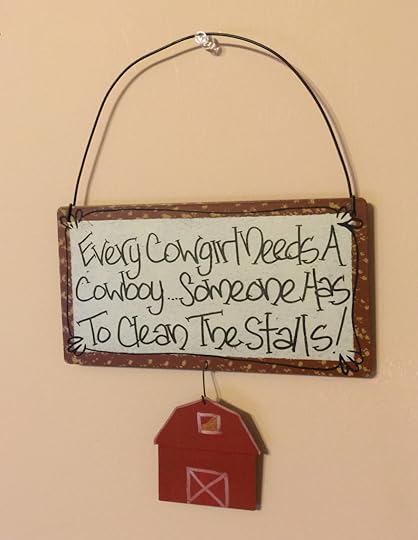 Every Cowgirl Needs A
Cowboy...Someone Has
To Clean The Stalls!